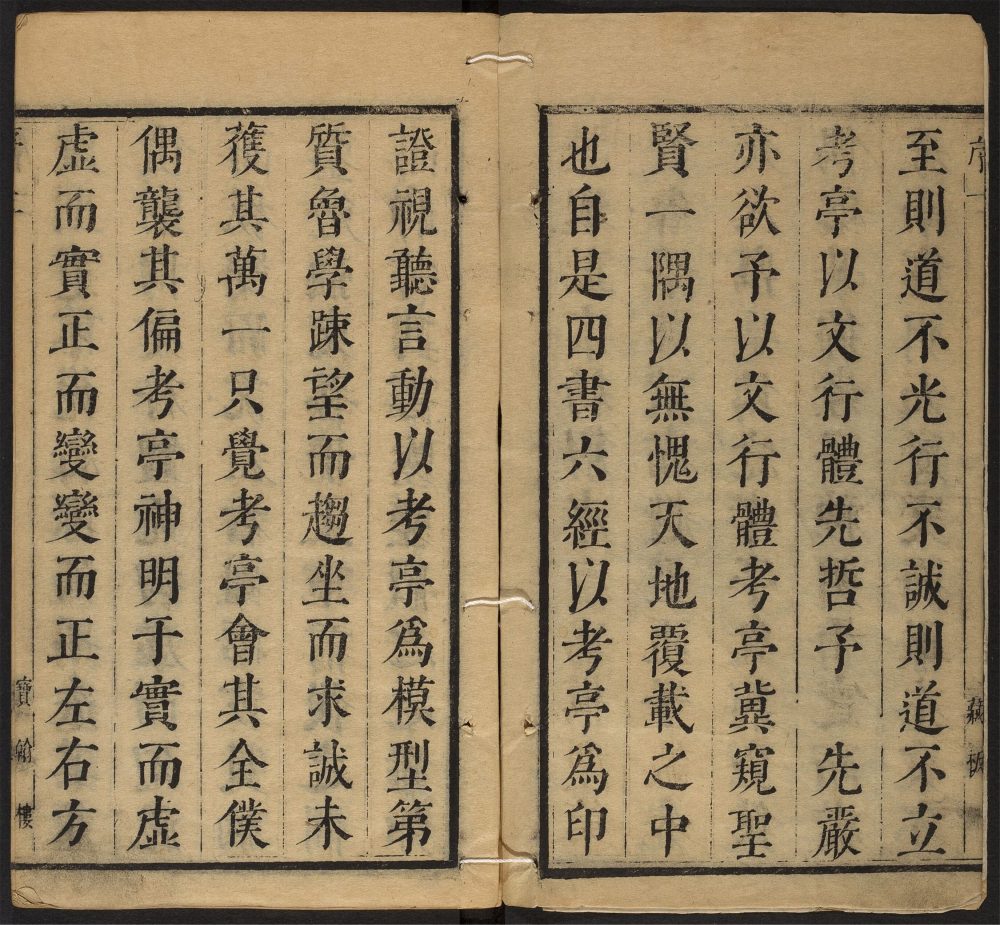 至則道不光行不誠則道不立
考亭以文行體先哲予　先嚴
亦欲予以文行體考亭冀窺聖
賢一隅以無愧天地覆載之中
也自是四書六經以考亭爲印
證視聽言動以考亭爲模型第
質魯學踈望而趨坐而求誠未
獲其萬一只覺考亭會其全僕
偶襲其偏考亭神明于實而虛
虛而實正而變變而正左右方
藏板
寶翰樓